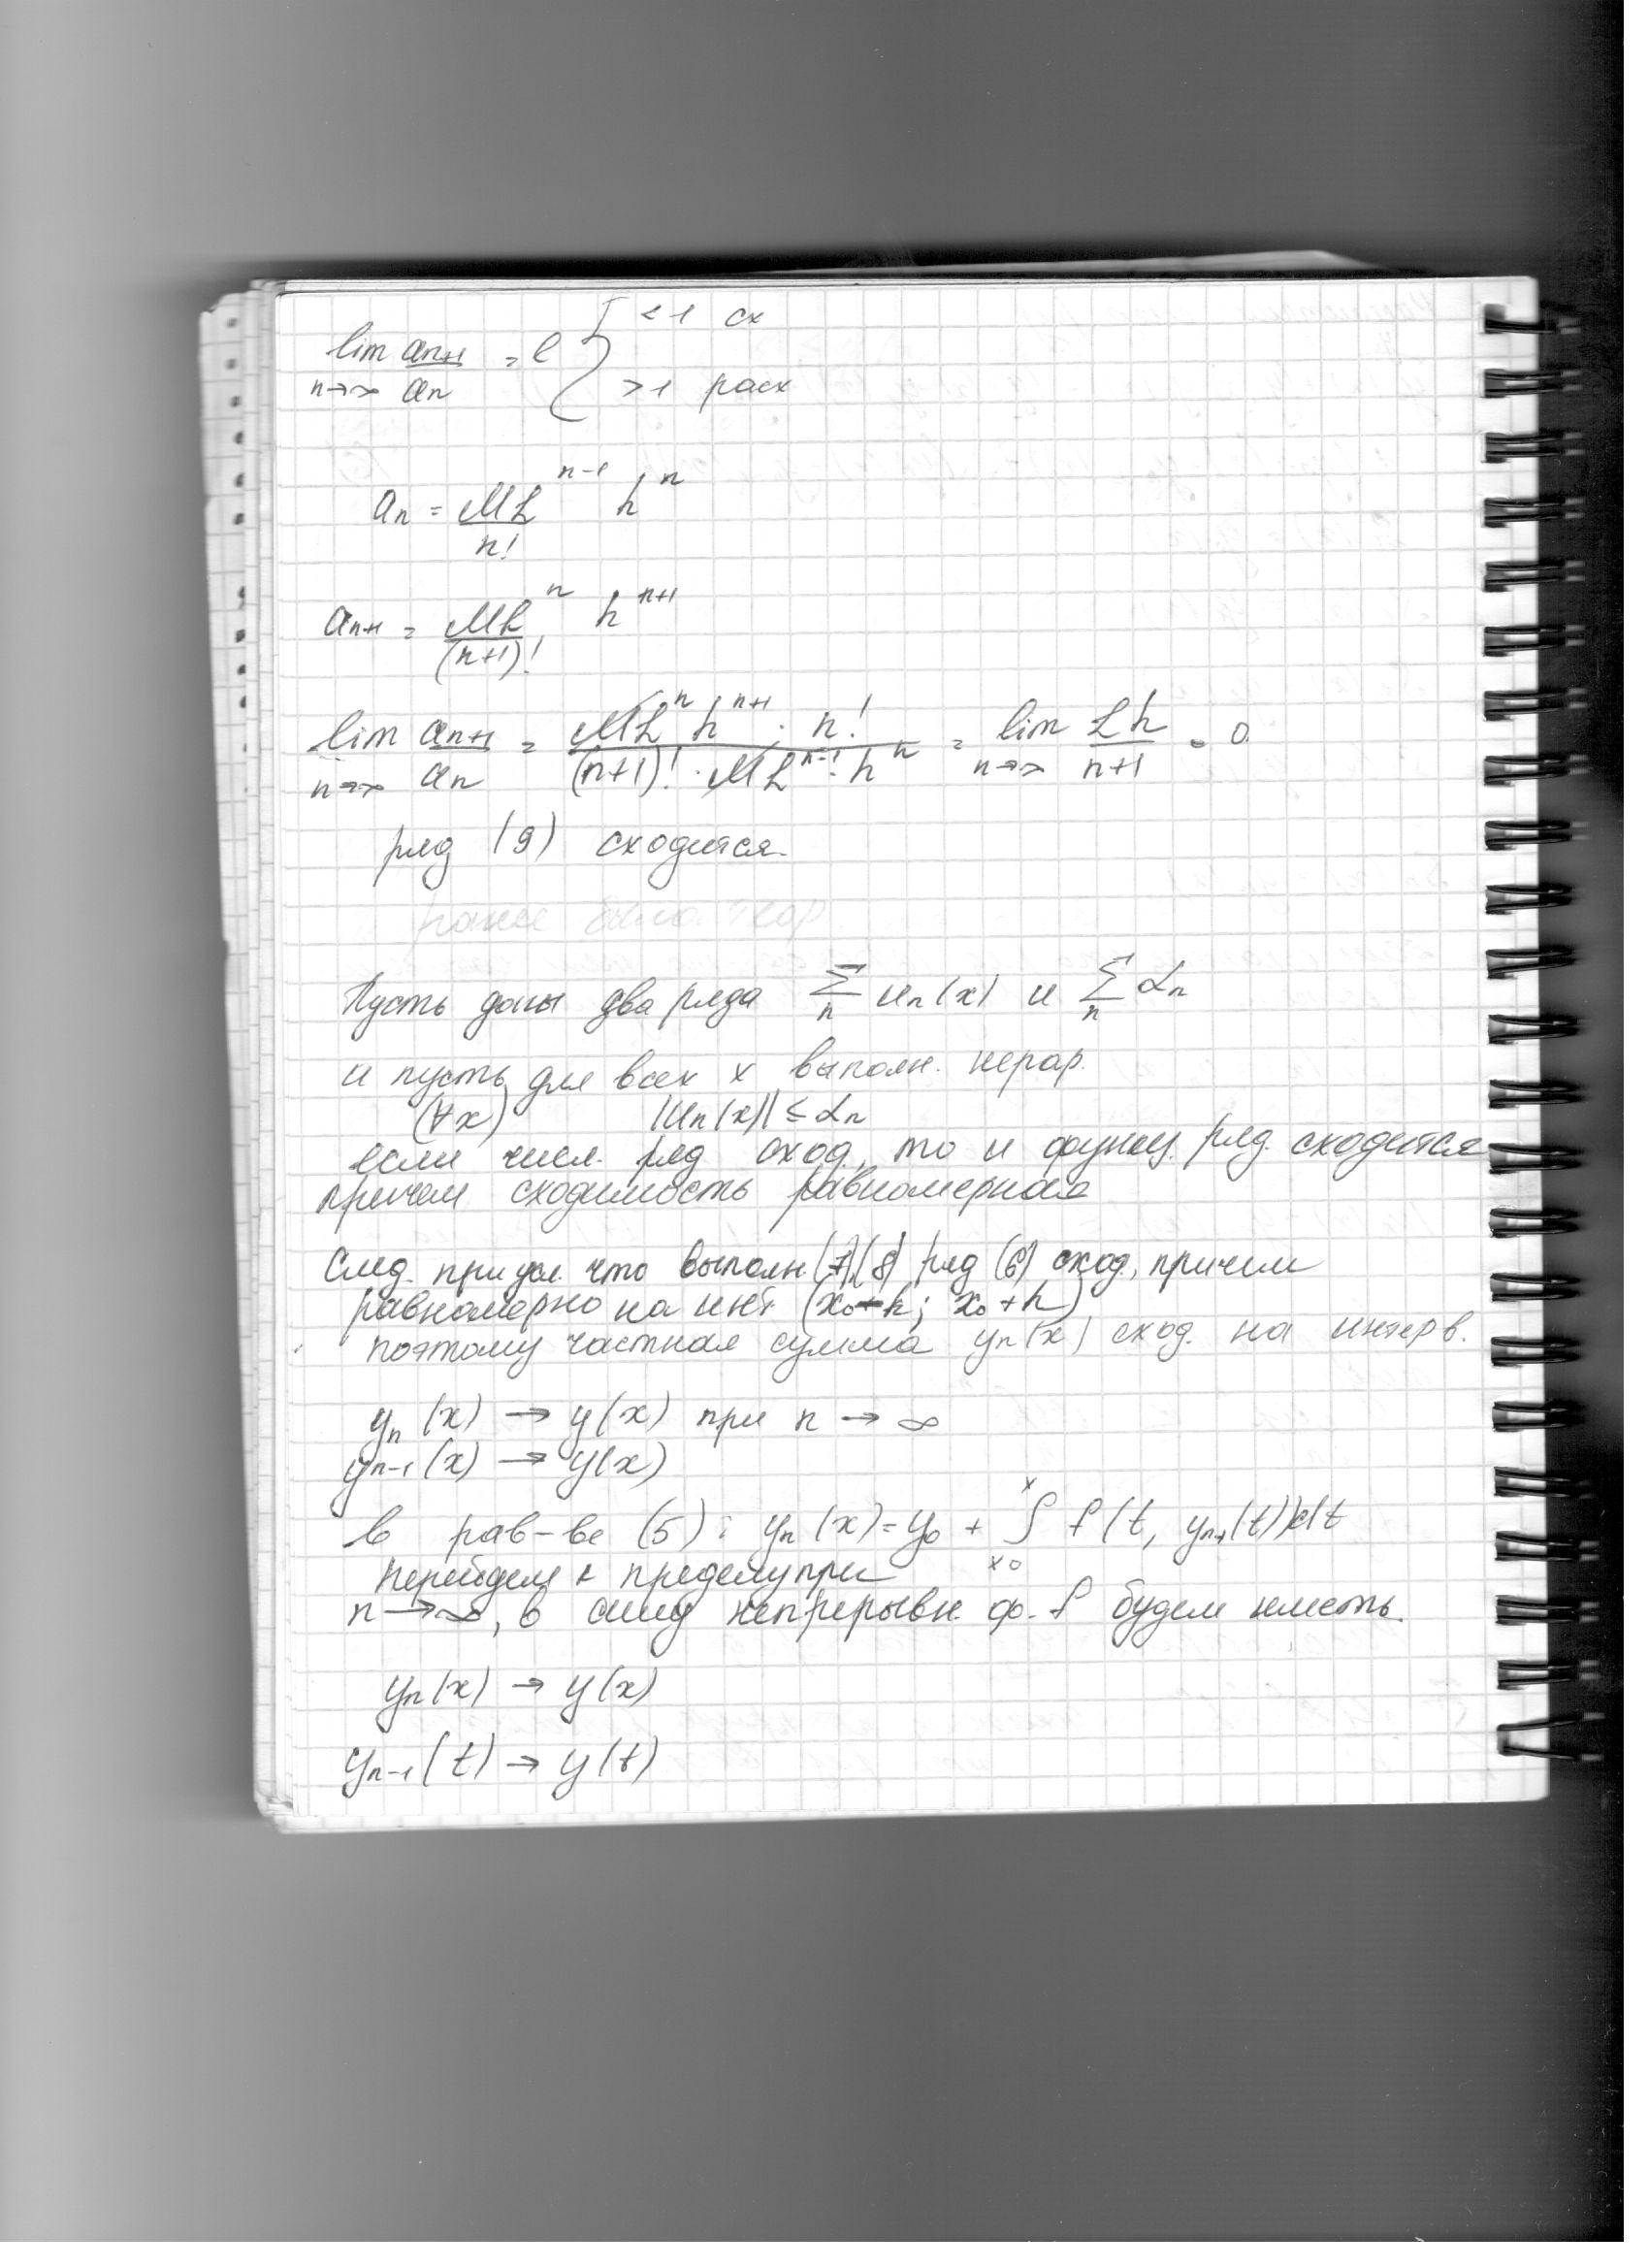 lim a_{n+1}/a_n = l { < 1 сх
n→∞ > 1 расх
a_n = ML^{n-1}/n! h^n
a_{n+1} = ML^n/(n+1)! h^{n+1}
lim_{n→∞} a_{n+1}/a_n = ML^n h^{n+1} · n!/(n+1)! · ML^{n-1} · h^n = lim_{n→∞} Lh/n+1 = 0
ряд (9) сходится.
Пусть даны два ряда ∑_n u_n(x) и ∑_n α_n
и пусть для всех x выполн. нерав.
(∀x) |u_n(x)| ≤ α_n
если числ. ряд сход, то и функц. ряд. сходится
причем сходимость равномерная
След. при усл. что выполн. (7)(8) ряд (6) сход, причем
равномерно на инт. (x_0-h; x_0+h)
поэтому частная сумма y_n(x) сход. на интерв.
y_n(x) → y(x) при n → ∞
y_{n-1}(x) → y(x)
в рав-ве (5): y_n(x) = y_0 + ∫_{x_0}^{x} f(t, y_{n-1}(t))dt
перейдем к пределу при
n → ∞, в силу непрерывн. ф. f будем иметь.
y_n(x) → y(x)
y_{n-1}(t) → y(t)